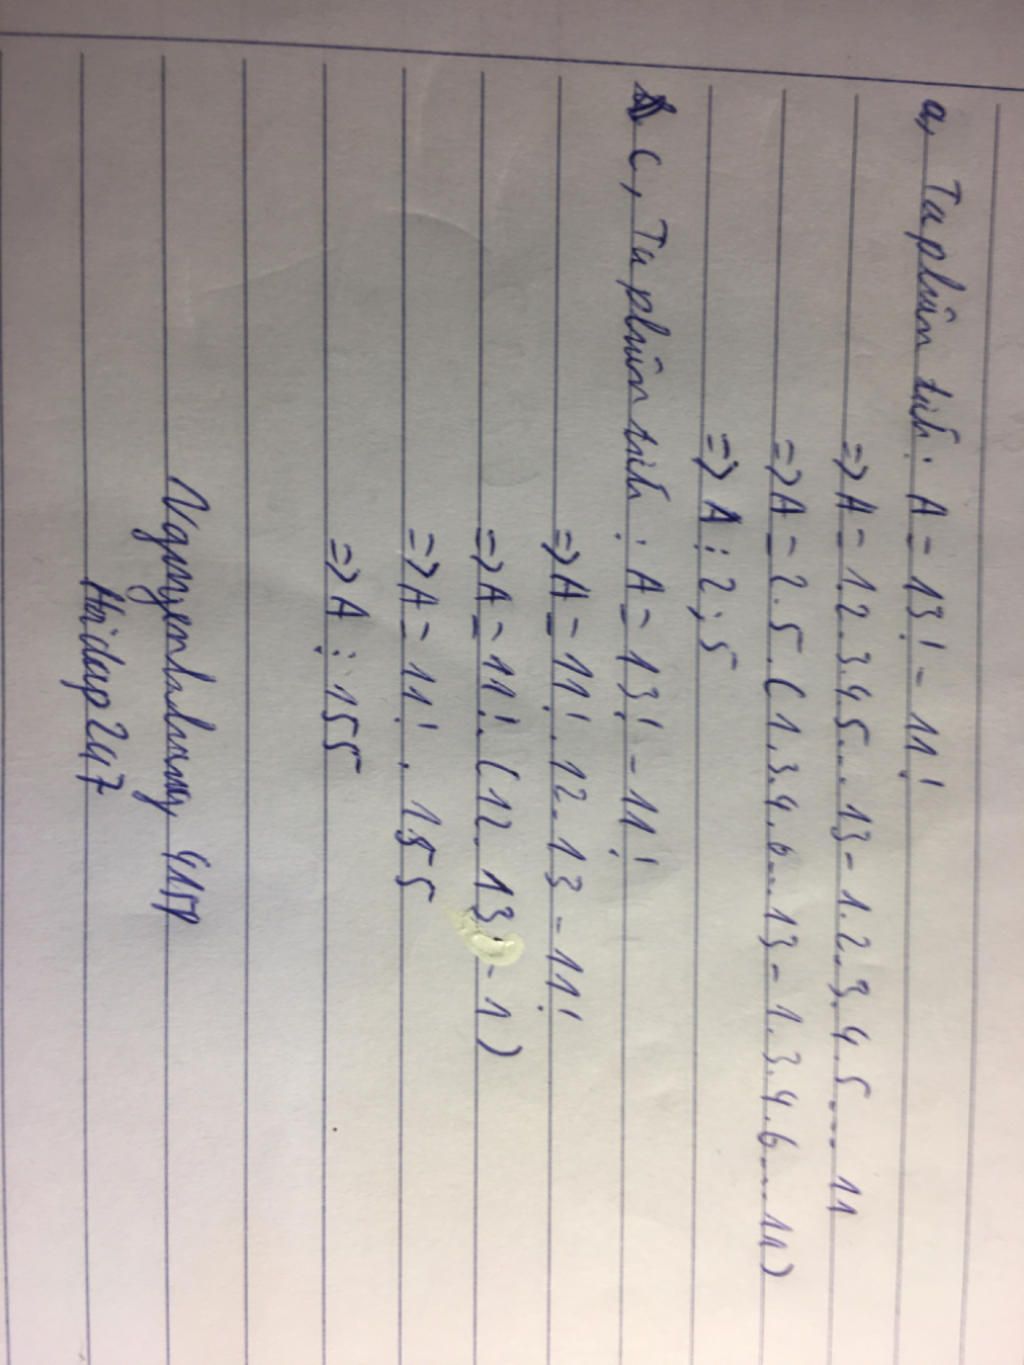 a, Ta phân tích: A = 13! - 11!
=> A = 1.2.3.4.5...13 - 1.2.3.4.5...11
=> A = 2.5.(1.3.4.6...13 - 1.3.4.6...11)
=> A ⋮ 2; 5
c, Ta phân tích: A = 13! - 11!
=> A = 11!.12.13 - 11!
=> A = 11!.(12.13 - 1)
=> A = 11!.155
=> A ⋮ 155
Hoidap247